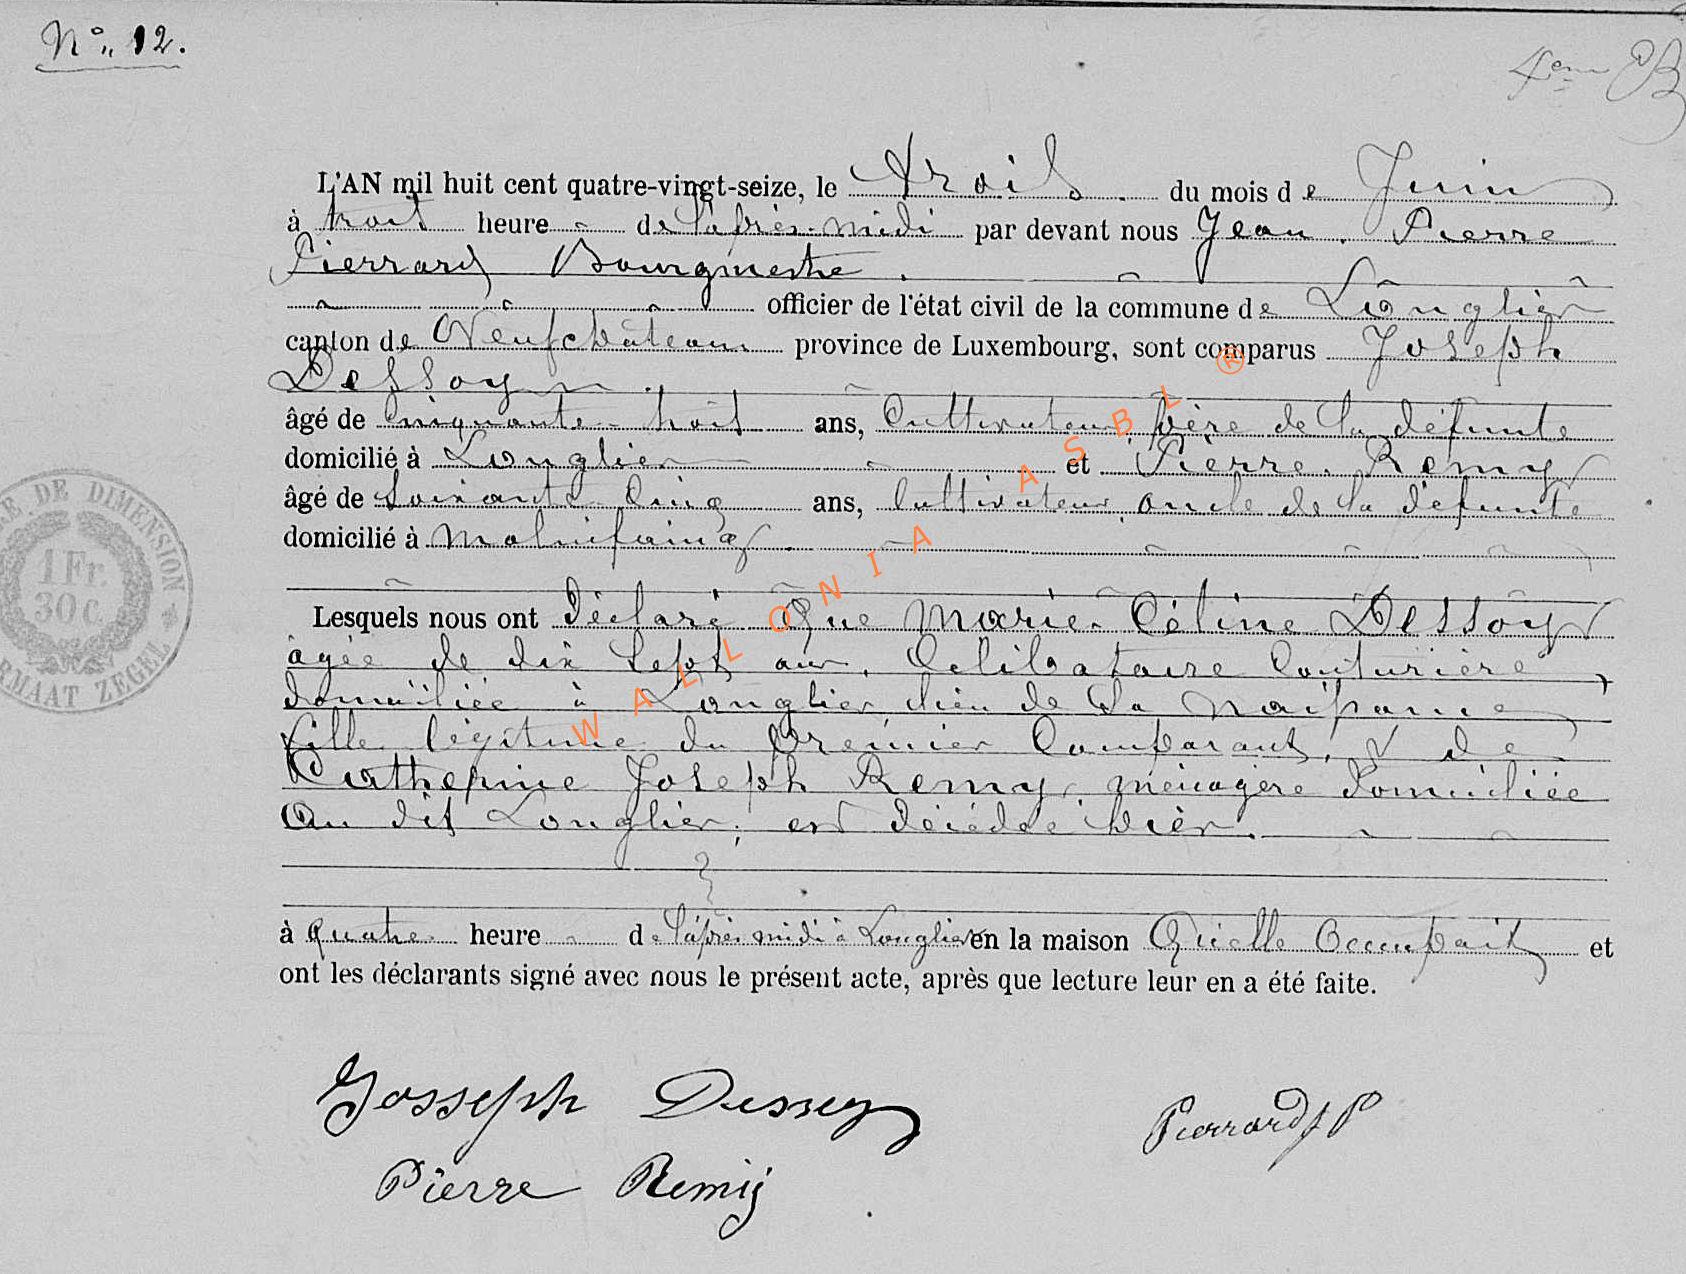 N° 12.
4em B
L'AN mil huit cent quatre-vingt-seize, le trois du mois de Juin
à trois heure de l'après-midi par devant nous Jean Pierre
Pierrard Bourgmestre
officier de l'état civil de la commune de Longlier
canton de Neufchâteau province de Luxembourg, sont comparus Joseph
Dessoy
âgé de cinquante trois ans, Cultivateur, père de la défunte
domicilié à Longlier et Pierre Remy
âgé de soixante cinq ans, Cultivateur oncle de la défunte
domicilié à Molinfaing
Lesquels nous ont déclaré Que Marie Céline Dessoy
âgée de dix sept ans, Célibataire Couturière,
domiciliée à Longlier, lieu de sa naissance
fille légitime du Premier Comparant, & de
Catherine Joseph Remy, ménagère domiciliée
Au dit Longlier, est décédée hièr.
à quatre heure de l'après midi à Longlier en la maison Qu'elle Occupait et
ont les déclarants signé avec nous le présent acte, après que lecture leur en a été faite.
Josseph Dessoy
Pierrard J P
Pierre Remij
DE DIMENSION
1 Fr.
30 c
FORMAAT ZEGEL
WALLONIA ASBL ®